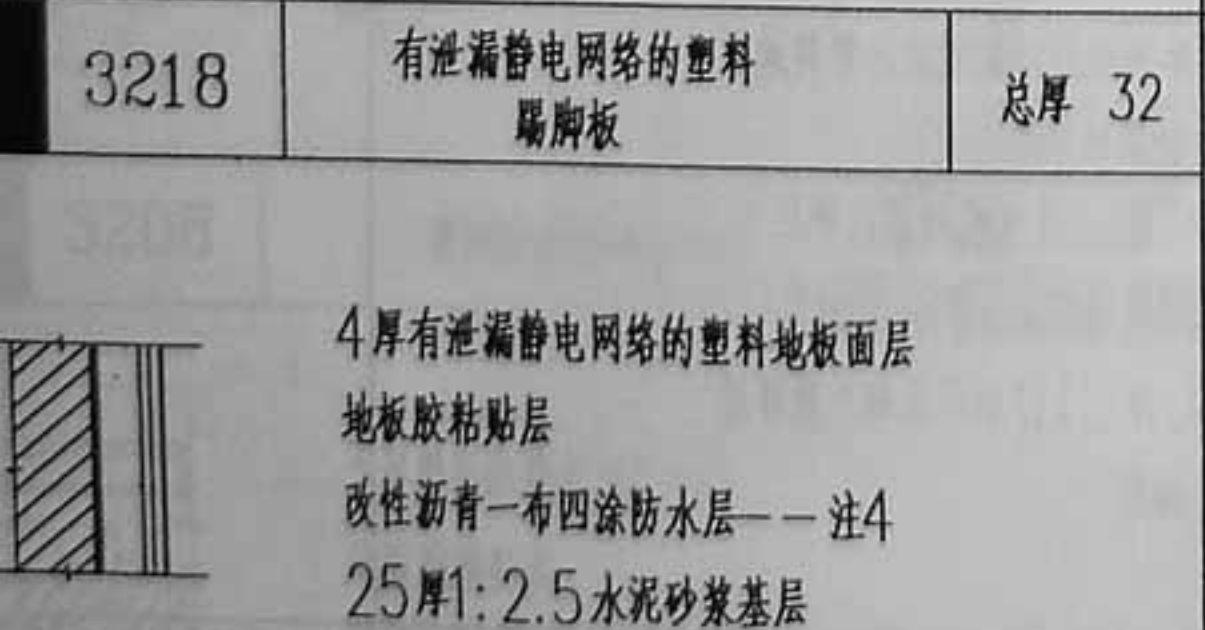 3218
有泄漏静电网络的塑料
踢脚板
总厚 32
4厚有泄漏静电网络的塑料地板面层
地板胶粘贴层
改性沥青一布四涂防水层——注4
25厚1:2.5水泥砂浆基层